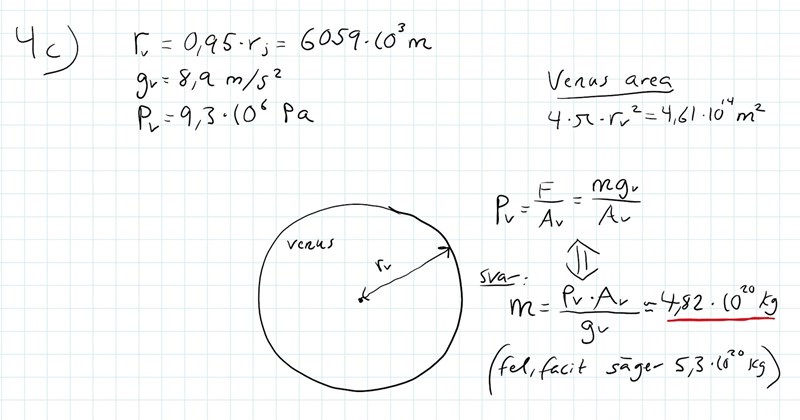 4c)
r_v = 0,95 · r_j = 6059 · 10³ m
g_v = 8,9 m/s²
P_v = 9,3 · 10⁶ Pa
Venus area
4 · π · r_v² = 4,61 · 10¹⁴ m²
P_v = F/A_v = mg_v/A_v
⇕
venus
r_v
svar:
m = P_v · A_v / g_v ≈ 4,82 · 10²⁰ kg
(fel, facit säger 5,3 · 10²⁰ kg)